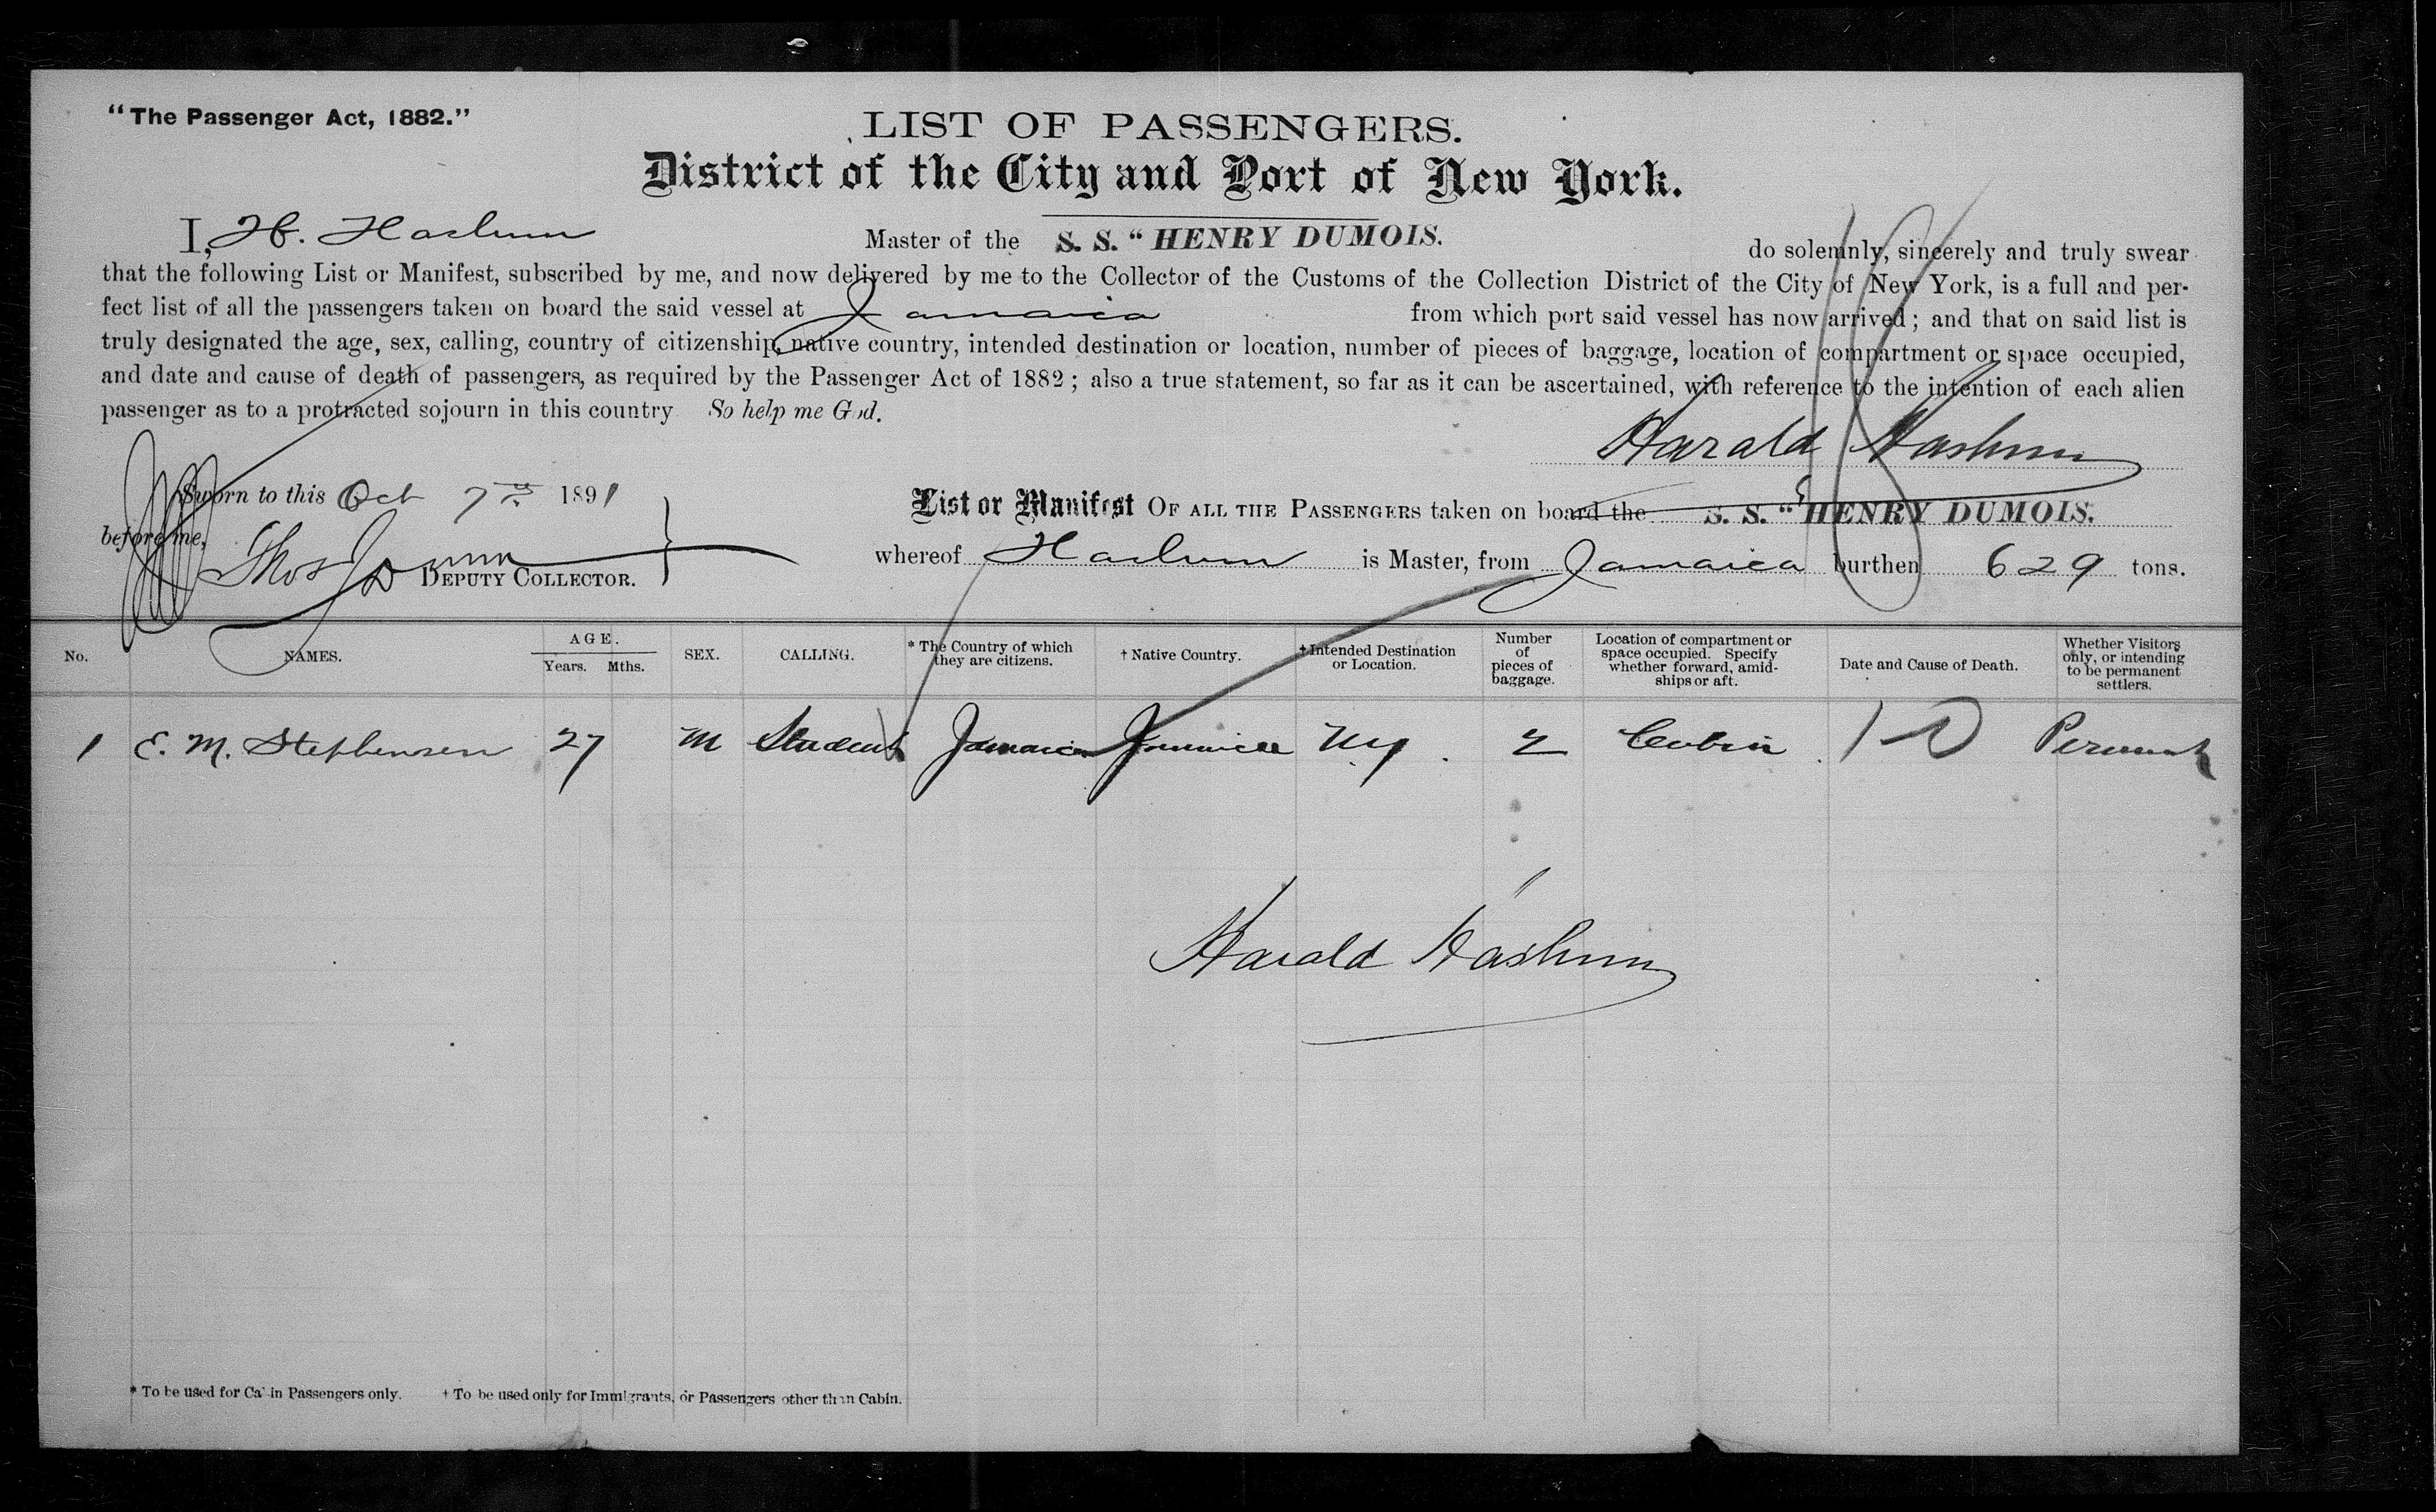 "The Passenger Act, 1882."
LIST OF PASSENGERS.
District of the City and Port of New York.
I, H. Haslum Master of the S. S. "HENRY DUMOIS. do solemnly, sincerely and truly swear
that the following List or Manifest, subscribed by me, and now delivered by me to the Collector of the Customs of the Collection District of the City of New York, is a full and per-
fect list of all the passengers taken on board the said vessel at Jamaica from which port said vessel has now arrived; and that on said list is
truly designated the age, sex, calling, country of citizenship, native country, intended destination or location, number of pieces of baggage, location of compartment or space occupied,
and date and cause of death of passengers, as required by the Passenger Act of 1882; also a true statement, so far as it can be ascertained, with reference to the intention of each alien
passenger as to a protracted sojourn in this country So help me God.
Harald Haslum
Sworn to this Oct 7th 1891
before me,
Thos DEPUTY COLLECTOR.
List or Manifest OF ALL THE PASSENGERS taken on board the S. S. "HENRY DUMOIS.
whereof Haslum is Master, from Jamaica burthen 629 tons.
No. NAMES. AGE. Years. Mths. SEX. CALLING. * The Country of which they are citizens. † Native Country. † Intended Destination or Location. Number of pieces of baggage. Location of compartment or space occupied. Specify whether forward, amid-ships or aft. Date and Cause of Death. Whether Visitors only, or intending to be permanent settlers.
1 E. M. Stephensen 27 M Student Jamaica Jamaica NY 2 Cabin
Harald Haslum
* To be used for Cabin Passengers only. † To be used only for Immigrants, or Passengers other than Cabin.